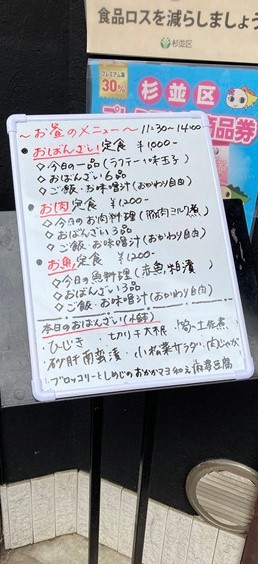 食品ロスを減らしましょう
杉並区
プレミアム率
30%
杉並区
商品券
~お昼のメニュー~ 11:30-14:00
● おばんざい定食 ¥1000-
◇今日の一品(ラフテー・味玉子)
◇おばんざい6品
◇ご飯・お味噌汁(おかわり自由)
● お肉定食 ¥1200-
◇今日のお肉料理(豚肉ミルク煮)
◇おばんざい3品
◇ご飯・お味噌汁(おかわり自由)
● お魚定食 ¥1200-
◇今日の魚料理(赤魚粕漬)
◇おばんざい3品
◇ご飯・お味噌汁(おかわり自由)
本日のおばんざい(小鉢)
・ひじき ・切り干大根
・砂肝南蛮漬 ・小松菜サラダ・肉じゃが
・ブロッコリーとしめじのおかかマヨ和え・麻婆豆腐